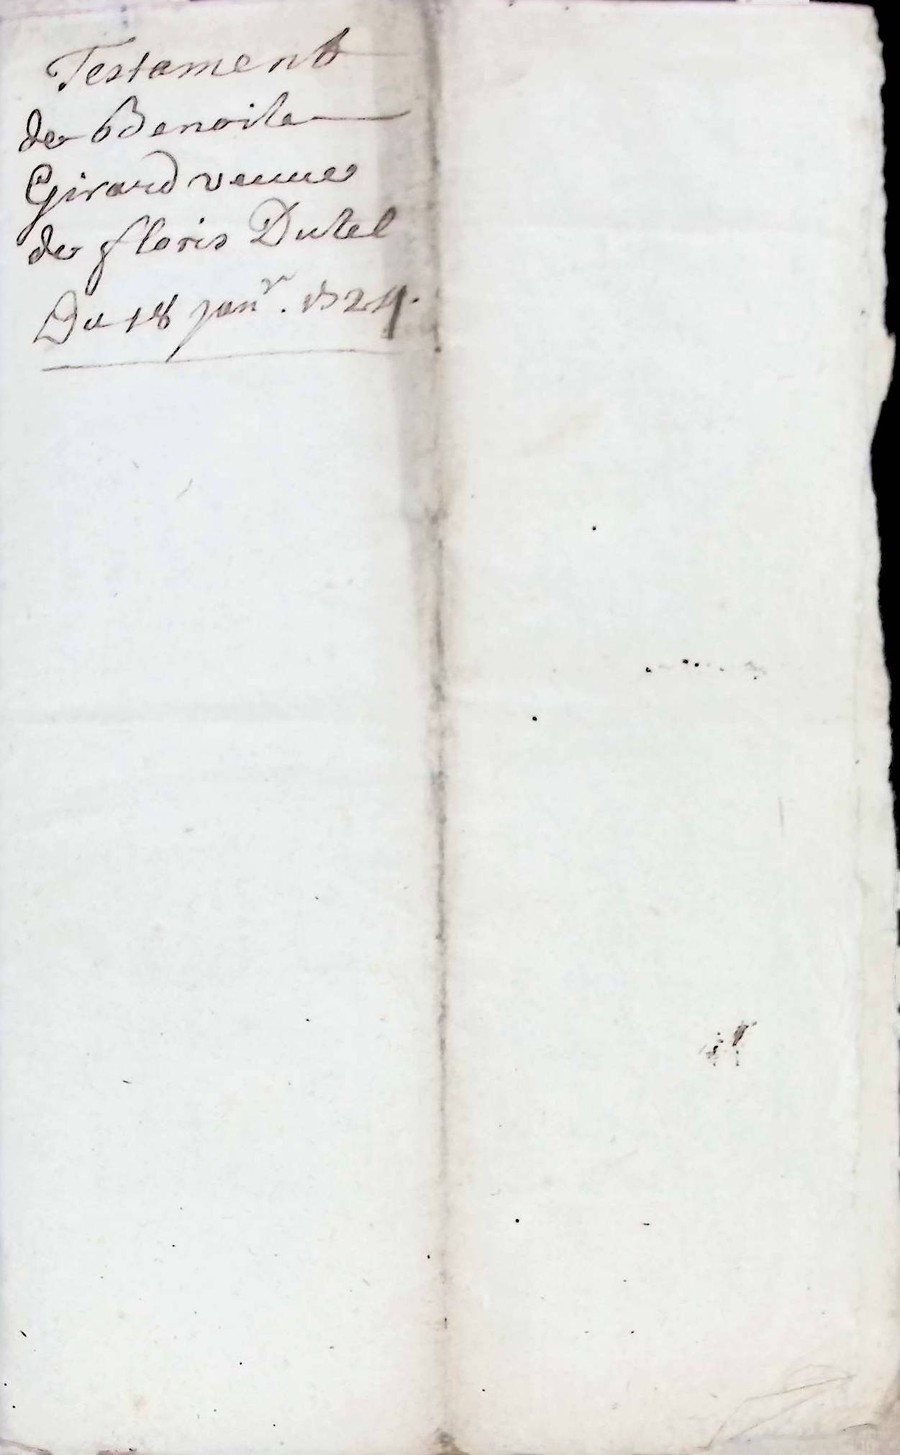 Testament
de Benoite
Girard veuve
de floris Dutel
Du 18 janr. 1824.